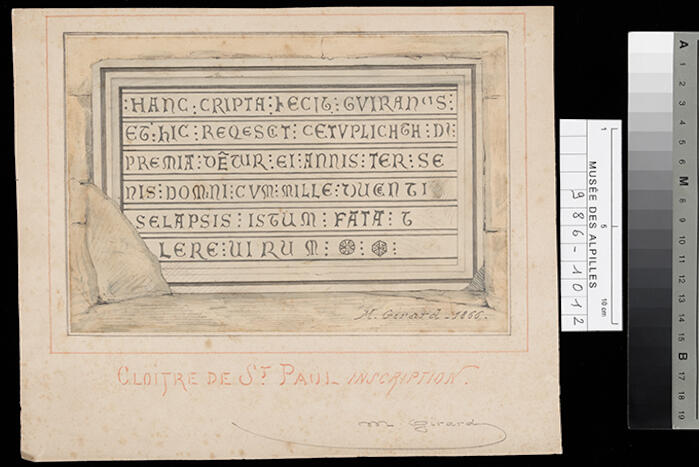 :HANC:CRIPTA:FECIT:GUIRANUS:
ET:HIC:REQESCT:CETUPLICHTA:DI
PREMIA:DĒTUR:EI:ANNIS:TER:SE
NIS:DOMINI:CUM:MILLE:DUCENTI
SELAPSIS:ISTUM:FATA:T
LERE:UIRUM:
M. Girard_1866.
CLOITRE DE ST PAUL INSCRIPTION.
M Girard
MUSÉE DES ALPILLES
986-1012
1 5 10 cm
A 1 2 3 4 5 6 M 8 9 10 11 12 13 14 15 B 17 18 19